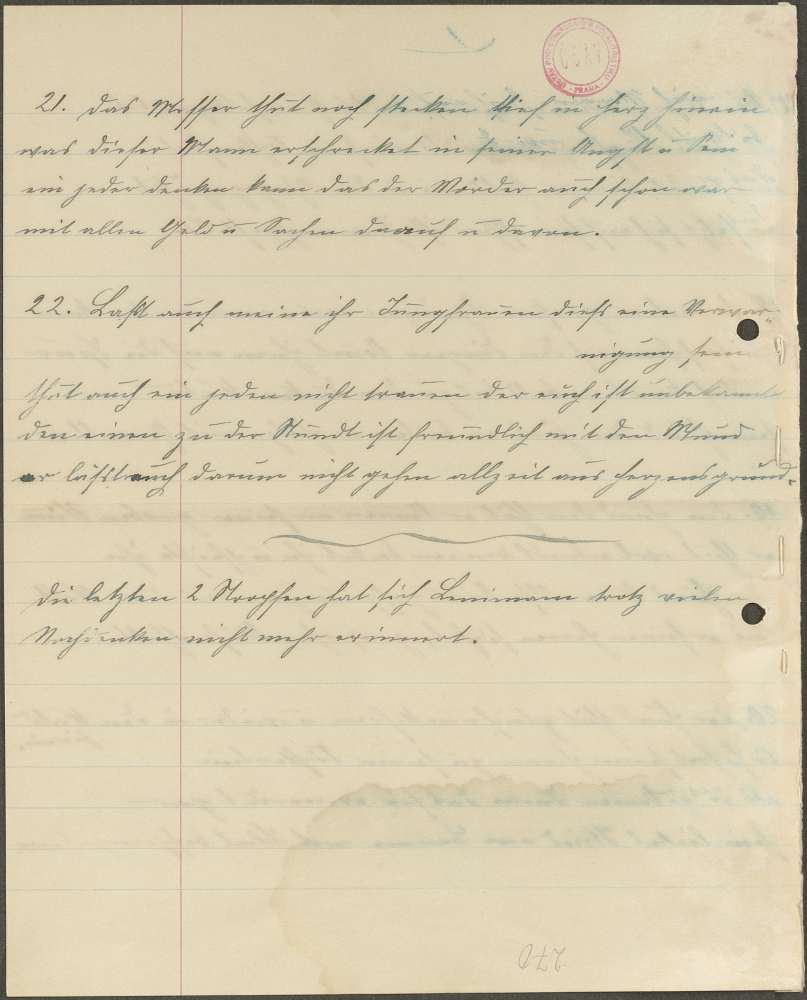 21. Das Messer thut noch stecken tief in Herz hinein
was dieser Mann erschrecket in seiner Angst u Pein
ein jeder denken kann das der Mörder auch schon war
mit allen Geld u Sachen darauf u davon.
22. Laßt auch meine ihr Jungfrauen dieß eine
nigung sein
thut auch ein jeden nicht trauen der euch ist unbekannt
den einen zu der Stundt ist freundlich mit den Mund
er läßt euch darum nicht gehen allzeit aus Herzensgrund.
Die letzten 2 Strophen hat sich trotz vielen
Nachdenken nicht mehr erinnert.
PRAHA
270